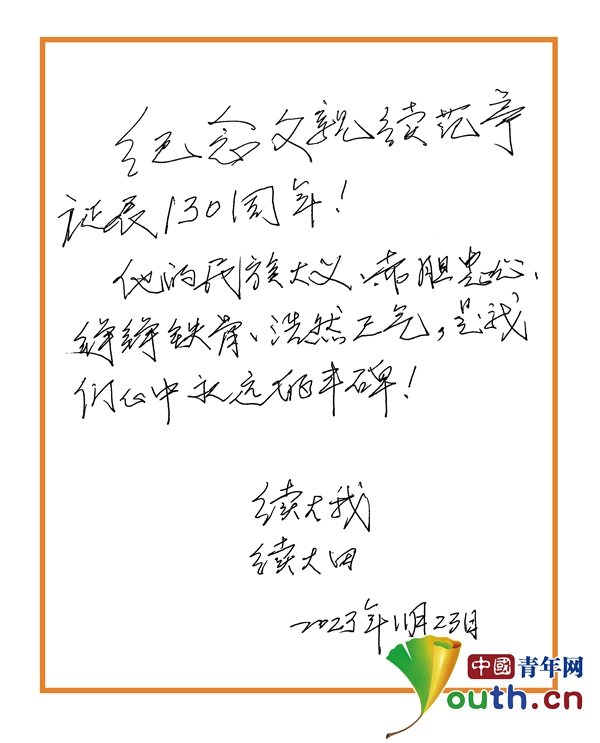 纪念父亲续范亭
诞辰130周年！
他的民族大义、赤胆忠心、
铮铮铁骨、浩然正气，是我
们心中永远的丰碑！
续大我
续大田
2023年11月23日
中國青年网
Youth.cn